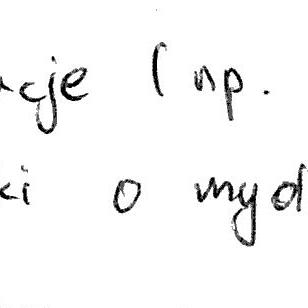 cje (np.
ki o myd